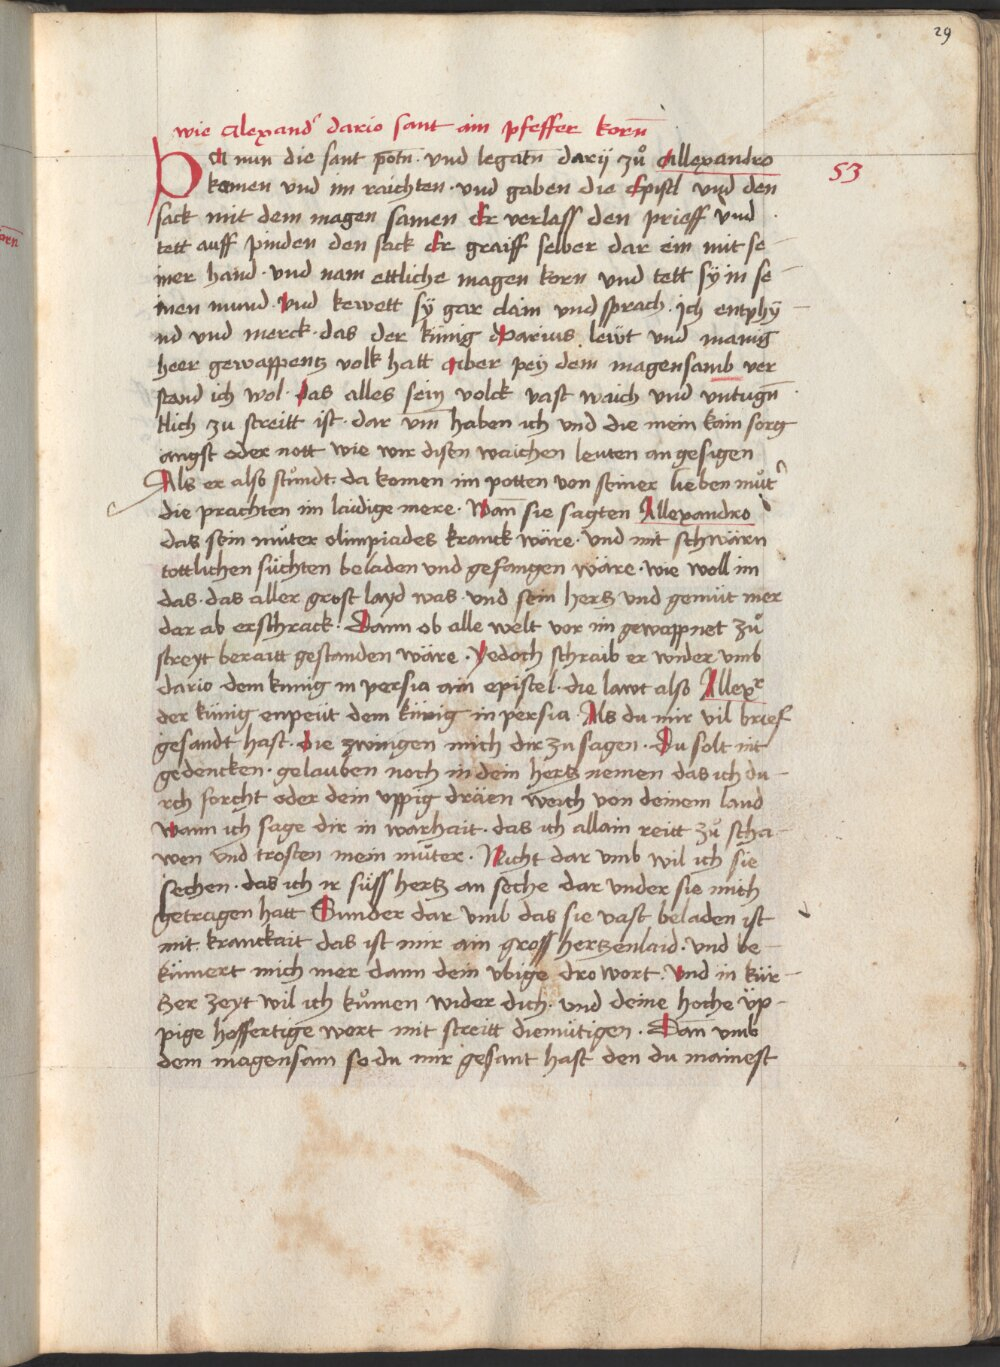 29
wie Alexandʾ dario sant ain pfeffer korn̄
53
Da nun die sant potn̄ · vnd legatn̄ darij zů Allexandro
komen vnd im raichten · vnd gaben die Epistl vnd den
sack mit dem magen samen Er verlass den prieff vnd
tett auff pinden den sack Er graiff selber dar ein mit se-
iner hand · vnd nam ettliche magen korn vnd tett sÿ in se-
inen mund · Vnd kewett sÿ gar clain vnd sprach · ich entphÿ-
nd vnd merck · das der künig Darius lewt vnd manig
heer gewappentz volk hatt Aber peÿ dem magensamb ver
stand ich wol · Das alles sein volck vast waich vnd vntugn̄
tlich zu streitt ist · dar vm̄ haben ich vnd die mein kain sorg
angst oder nott wie wir disen waichen leuten an gesigen
Als er also stůndt · da komen im potten von seiner lieben můtʾ
die prachten im laidige mere · Wan̄ sie sagten Allexandro
das sein můter olimpiades kranck wäre · vnd mit schwärn
tottlichen süchten beladen vnd gefangen wäre · wie woll im
das · das aller grost layd was · vnd sein hertz vnd gemüt mer
dar ab erschrack · Dann ob alle welt vor im gewappnet zů
streyt beraitt gestanden wäre · Yedoch schraib er wider vmb
dario dem kunig in persia ain epistel · die lawt also Allexʳ
der künig enpeüt dem künig in persia · Als du mir vil brief
gesandt hast · Die zwingen mich dir zu sagen · Du solt nit
gedencken · gelauben noch in dein hertz nemen das ich du-
rch forcht oder dein vppig dräen weich von deinem land
Wann ich sage dir in warhait · das ich allain reitt zů scha-
wen vnd trosten mein můter · Nicht dar vmb wil ich sie
sechen · das ich ir süss hertz an seche dar vnder sie mich
getragen hatt Sunder dar vmb das sie vast beladen ist
mit kranckait das ist mir ain gross hertzenlaid · vnd be-
kümert mich mer dann dein vbige dro wort · Vnd in kür-
tzer zeyt wil ich kůmen wider dich · vnd deine hoche üp-
pige hoffertige wort mit streitt diemütigen · Dan̄ vmb
dem magensam so du mir gesant hast den du mainest